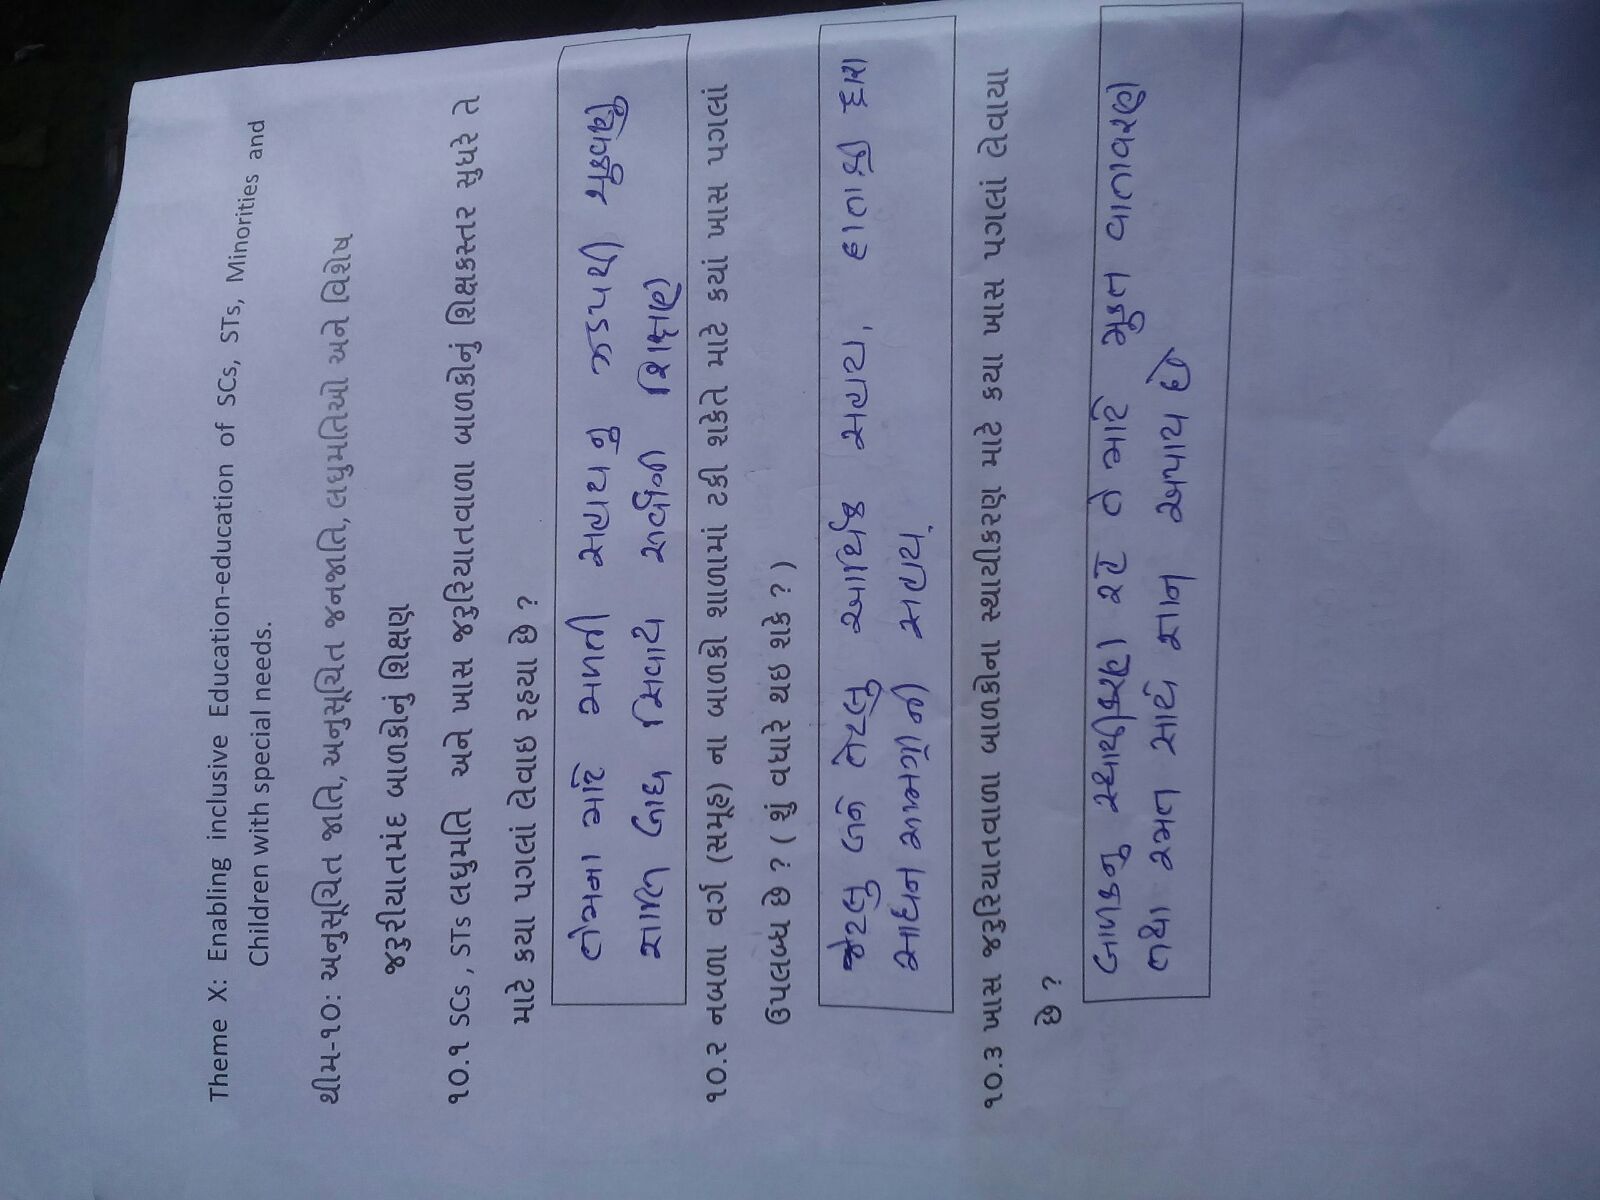 Theme X: Enabling inclusive Education-education of SCs, STs, Minorities and
Children with special needs.
થીમ-૧૦: અનુસૂચિત જાતિ, અનુસૂચિત જનજાતિ, લઘુમતિઓ અને વિશેષ
જરૂરીયાતમંદ બાળકોનું શિક્ષણ
૧૦.૧ SCs, STs લઘુમતિ અને ખાસ જરૂરિયાતવાળા બાળકોનું શિક્ષકસ્તર સુધરે તે
માટે કયા પગલાં લેવાઇ રહયા છે ?
તેમના માટે મળતી સહાયનુ ઝડપથી ચુકવણુ
જાતિ બાધ સિવાય સર્વાંગી શિક્ષણ
૧૦.૨ નબળા વર્ગ (સમૂહ) ના બાળકો શાળામાં ટકી શકેતે માટે કયાં ખાસ પગલાં
ઉપલબ્ધ છે ? ( શું વધારે થઇ શકે ? )
જેટલુ બને તેટલુ આર્થિક સહાય, દાતાશ્રી દ્વારા
સાધન સામગ્રીની સહાય.
૧૦.૩ ખાસ જરૂરિયાતવાળા બાળકોના સ્થાયીકરણ માટે કયા ખાસ પગલાં લેવાયા
છે ?
બાળકનુ સ્થાયીકરણ રહે તે માટે મુક્ત વાતાવરણ
તથા રમત સાથે જ્ઞાન અપાય છે